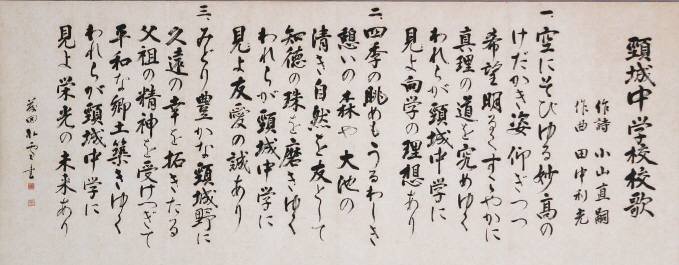 頸城中学校校歌
作詩 小山直嗣
作曲 田中利光
一、空にそびゆる妙高の
けだかき姿仰ぎつつ
希望明るくすこやかに
真理の道を究めゆく
われらが頸城中学に
見よ向学の理想あり
二、四季の眺めもうるわしき
憩いの森や大池の
清き自然を友として
知徳の珠を磨きゆく
われらが頸城中学に
見よ友愛の誠あり
三、みどり豊かな頸城野に
久遠の幸を拓きたる
父祖の精神を受けつぎて
平和な郷土築きゆく
われらが頸城中学に
見よ栄光の未来あり